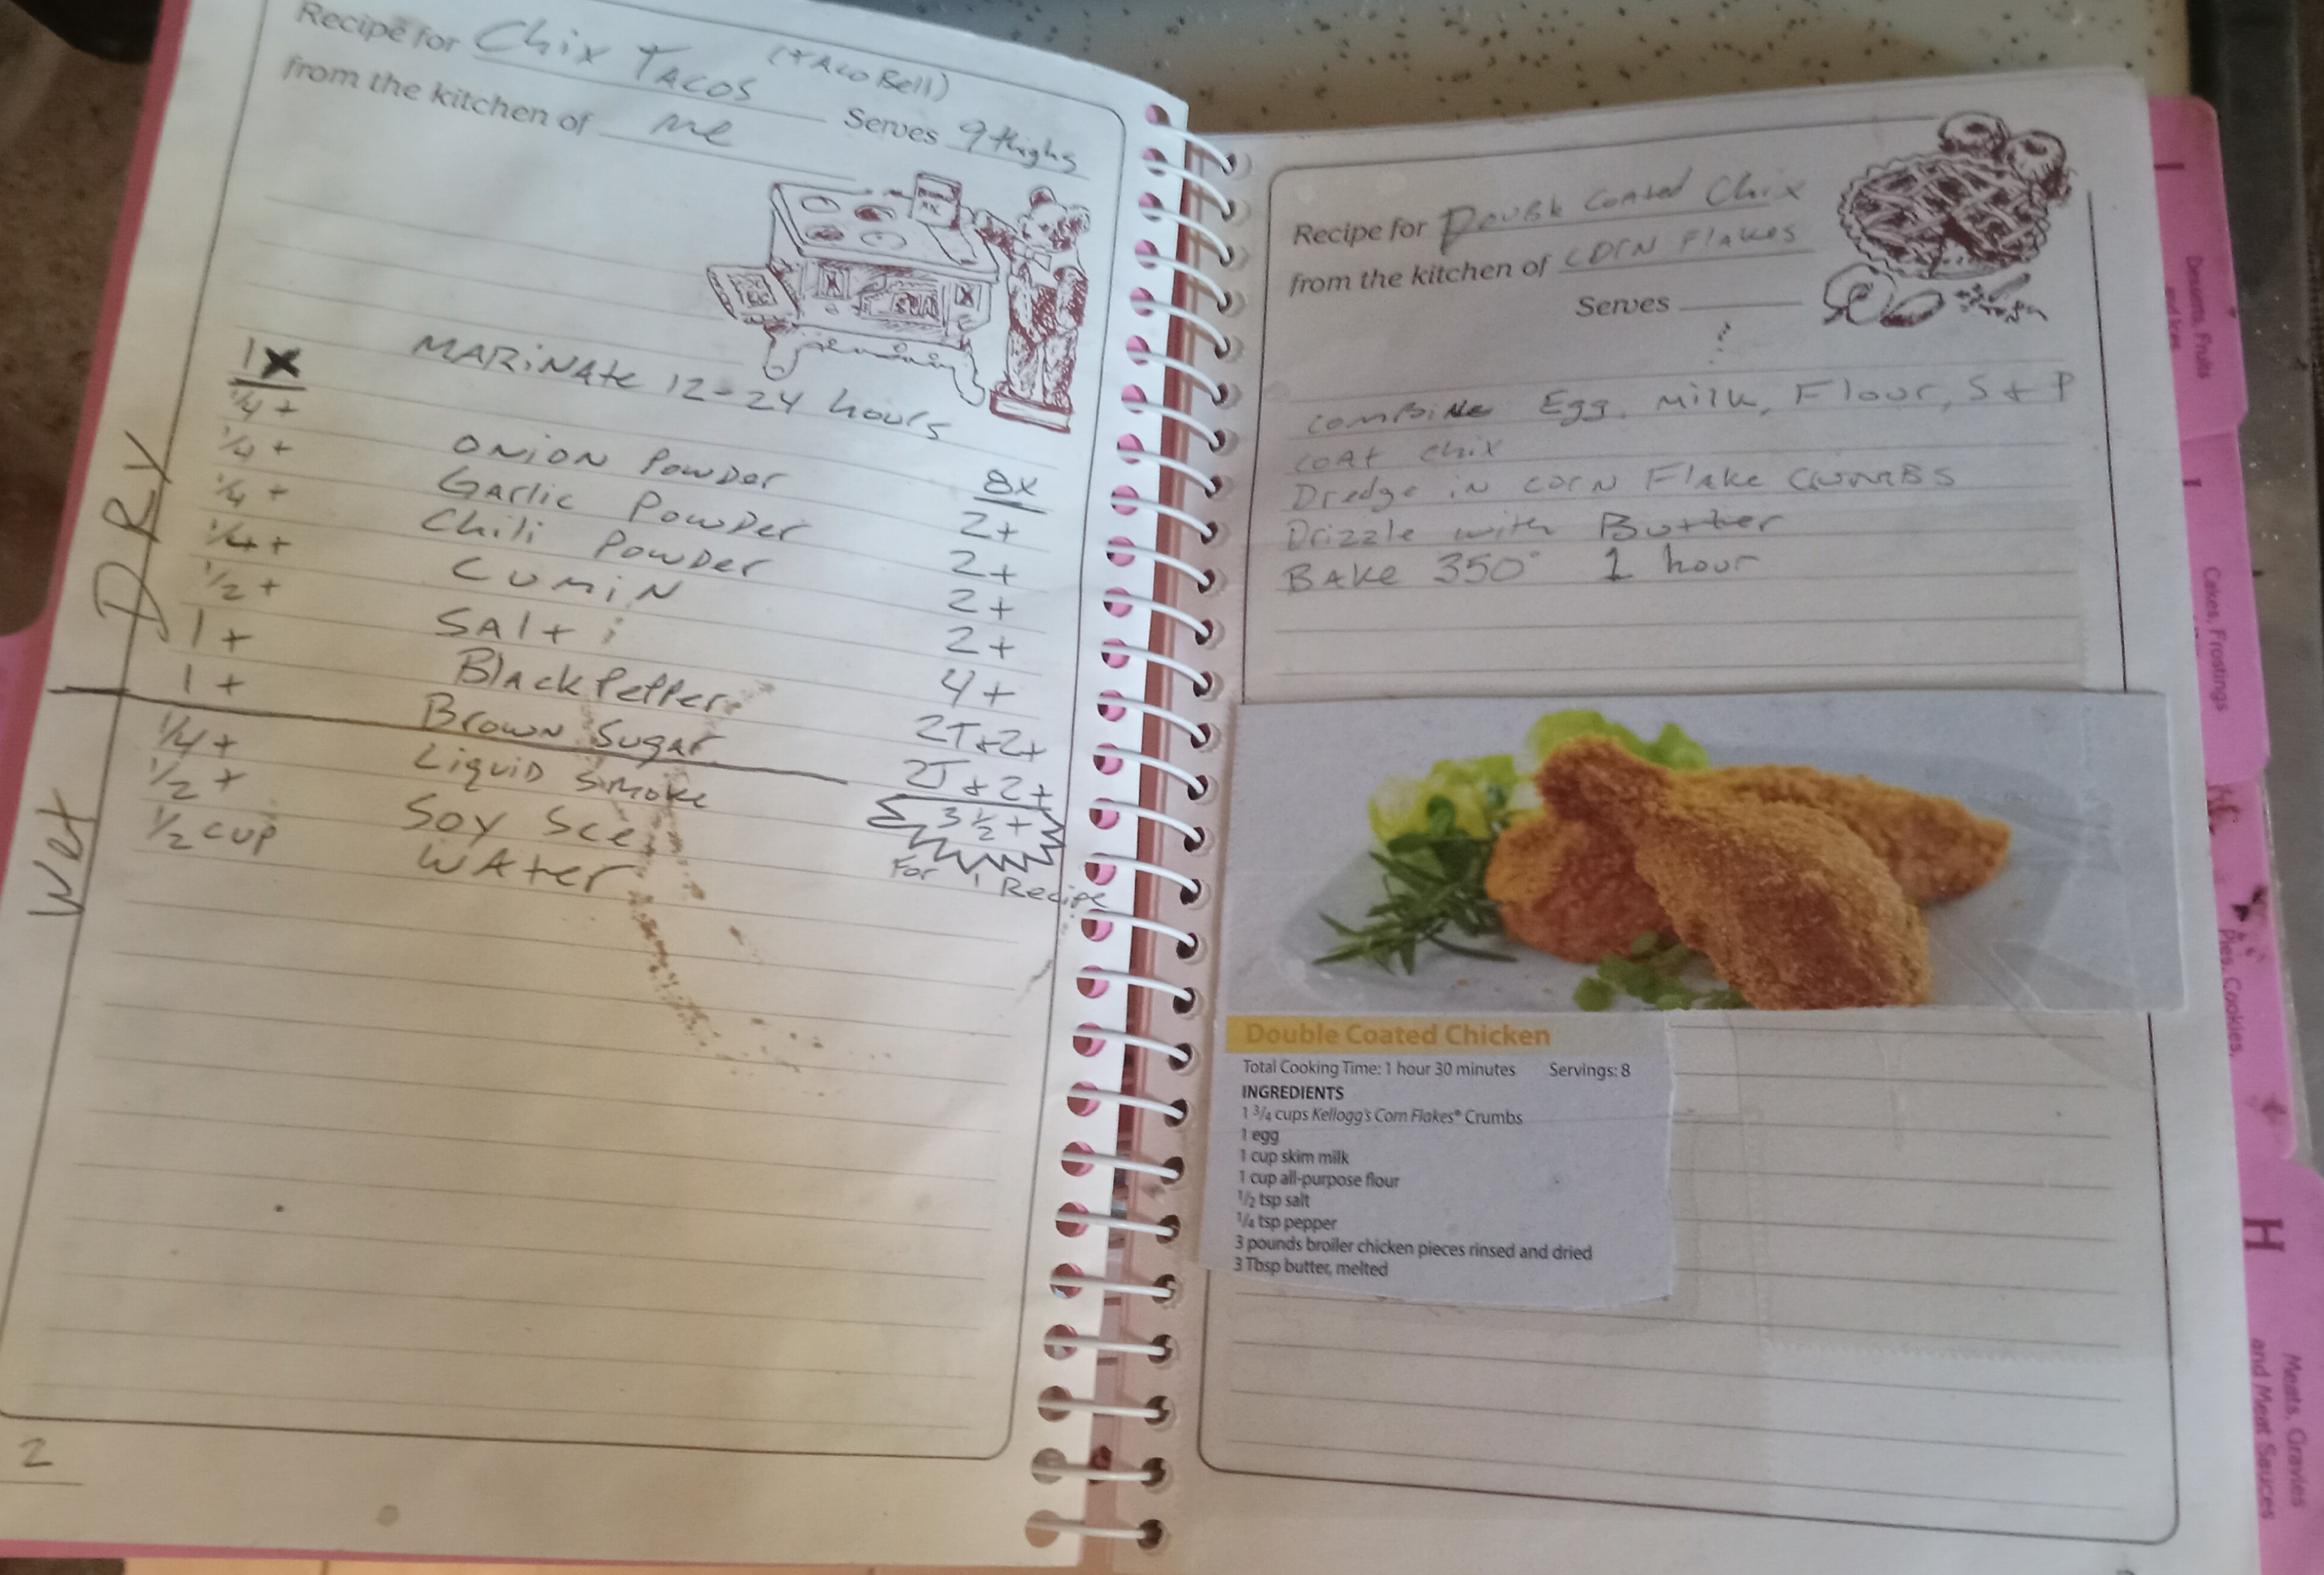 Recipe for Chix TACOS (tAco Bell)
from the kitchen of me Serves 9 thighs
1X MARiNAte 12-24 hours
DRY
1/4 t ONiON Powder 8x
1/4 t GArlic Powder 2t
1/4 t Chili Powder 2t
1/4 t CUMiN 2t
1/2 t SAlt 2t
1 t BlAck Pepper 4t
1 t Brown Sugar 2T+2t
2T+2t
Wet
1/4 t Liquid Smoke 3 1/2 t
1/2 t Soy Sce For 1 Recipe
1/2 cup WAter
2
Recipe for Double Coated Chix
from the kitchen of Corn Flakes
Serves
?
Combine Egg, Milk, Flour, S + P
Coat Chix
Dredge in corn Flake Crumbs
Drizzle with Butter
BAKe 350° 1 hour
Double Coated Chicken
Total Cooking Time: 1 hour 30 minutes Servings: 8
INGREDIENTS
1 3/4 cups Kellogg's Corn Flakes® Crumbs
1 egg
1 cup skim milk
1 cup all-purpose flour
1/2 tsp salt
1/4 tsp pepper
3 pounds broiler chicken pieces rinsed and dried
3 Tbsp butter, melted
Desserts, Fruits
Cakes, Frostings
Pies, Cookies,
H
Meats, Gravies
and Meat Sauces